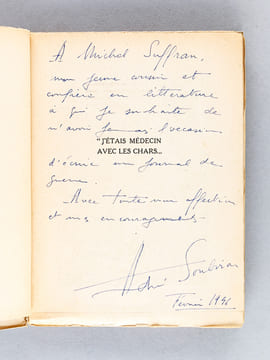 A Michel Suffran,
mon jeune cousin et
confrère en littérature
à qui je souhaite de
n'avoir jamais l'occasion
"J'ÉTAIS MÉDECIN
AVEC LES CHARS...
d'écrire un journal de
guerre.
Avec toute mon affection
et mes encouragements
André Soubiran
Février 1956